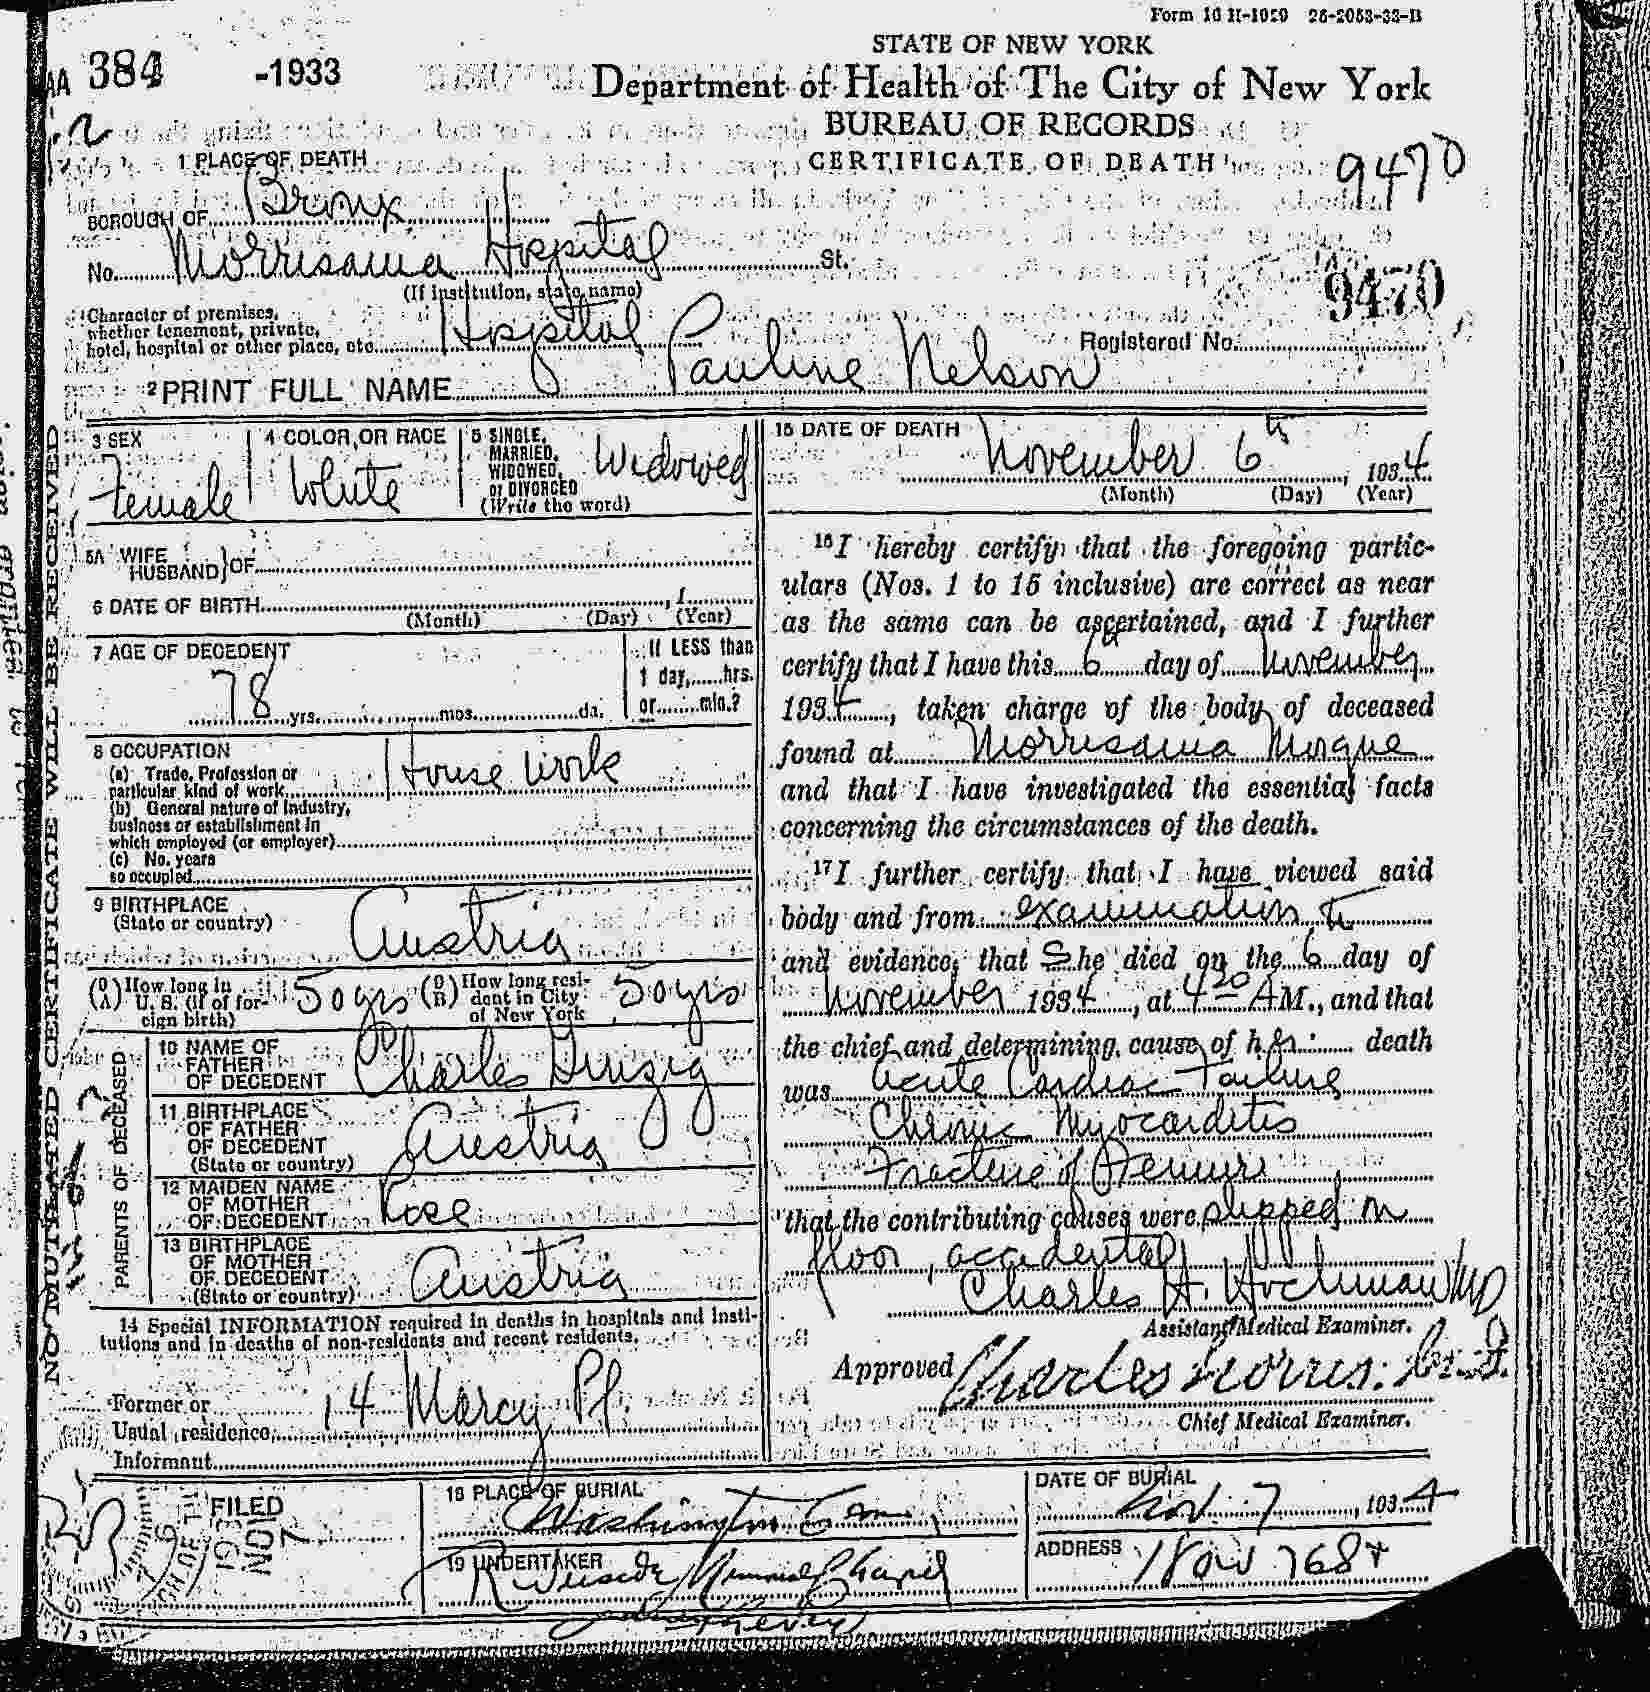 Form 10 H-1929 25-2053-33-B
STATE OF NEW YORK
AA 384 -1933
Department of Health of The City of New York
BUREAU OF RECORDS
CERTIFICATE OF DEATH
9470
1 PLACE OF DEATH
BOROUGH OF Bronx
No. Morrisania Hospital St.
(If institution, state name)
9470
Character of premises,
whether tenement, private,
hotel, hospital or other place, etc. Hospital
Registered No.
2 PRINT FULL NAME Pauline Nelson
NO MUTILATED CERTIFICATE WILL BE RECEIVED
3 SEX
Female
4 COLOR OR RACE
White
5 SINGLE,
MARRIED,
WIDOWED,
or DIVORCED
(Write the word)
Widowed
5A WIFE
HUSBAND } OF
6 DATE OF BIRTH , 1
(Month) (Day) (Year)
7 AGE OF DECEDENT
78 yrs. mos. ds.
If LESS than
1 day, hrs.
or min.?
8 OCCUPATION
(a) Trade, Profession or
particular kind of work House Work
(b) General nature of Industry,
business or establishment in
which employed (or employer)
(c) No. years
so occupied
9 BIRTHPLACE
(State or country)
Austria
(9A) How long in
U. S. (if of for-
eign birth)
50 yrs
(9B) How long resi-
dent in City
of New York
50 yrs
PARENTS OF DECEASED
10 NAME OF
FATHER
OF DECEDENT
Charles Ginzig
11 BIRTHPLACE
OF FATHER
OF DECEDENT
(State or country)
Austria
12 MAIDEN NAME
OF MOTHER
OF DECEDENT
Rose
13 BIRTHPLACE
OF MOTHER
OF DECEDENT
(State or country)
Austria
14 Special INFORMATION required in deaths in hospitals and insti-
tutions and in deaths of non-residents and recent residents.
Former or
Usual residence 14 Marcy Pl
Informant
15 DATE OF DEATH
November 6th, 1934
(Month) (Day) (Year)
16 I hereby certify that the foregoing partic-
ulars (Nos. 1 to 15 inclusive) are correct as near
as the same can be ascertained, and I further
certify that I have this 6th day of November
1934, taken charge of the body of deceased
found at Morrisania Morgue
and that I have investigated the essential facts
concerning the circumstances of the death.
17 I further certify that I have viewed said
body and from examination
and evidence, that She died on the 6 day of
November 1934, at 4 20 AM., and that
the chief and determining cause of her death
was Acute Cardiac Failure
Chronic Myocarditis
Fracture of Femur
that the contributing causes were slipped on
floor, accidental
Charles H. Hochman MD
Assistant Medical Examiner.
Approved Charles Norris
Chief Medical Examiner.
FILED
NOV 7
18 PLACE OF BURIAL
Washington Cem
DATE OF BURIAL
Nov. 7, 1934
19 UNDERTAKER
Riverside Memorial Chapel
ADDRESS